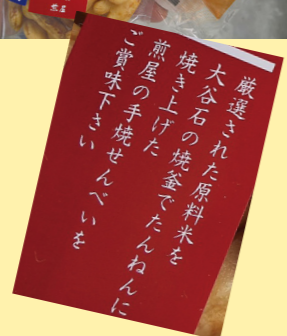 厳選された原料米を
大谷石の焼釜でたんねんに
焼き上げた
煎屋の手焼せんべいを
ご賞味下さい